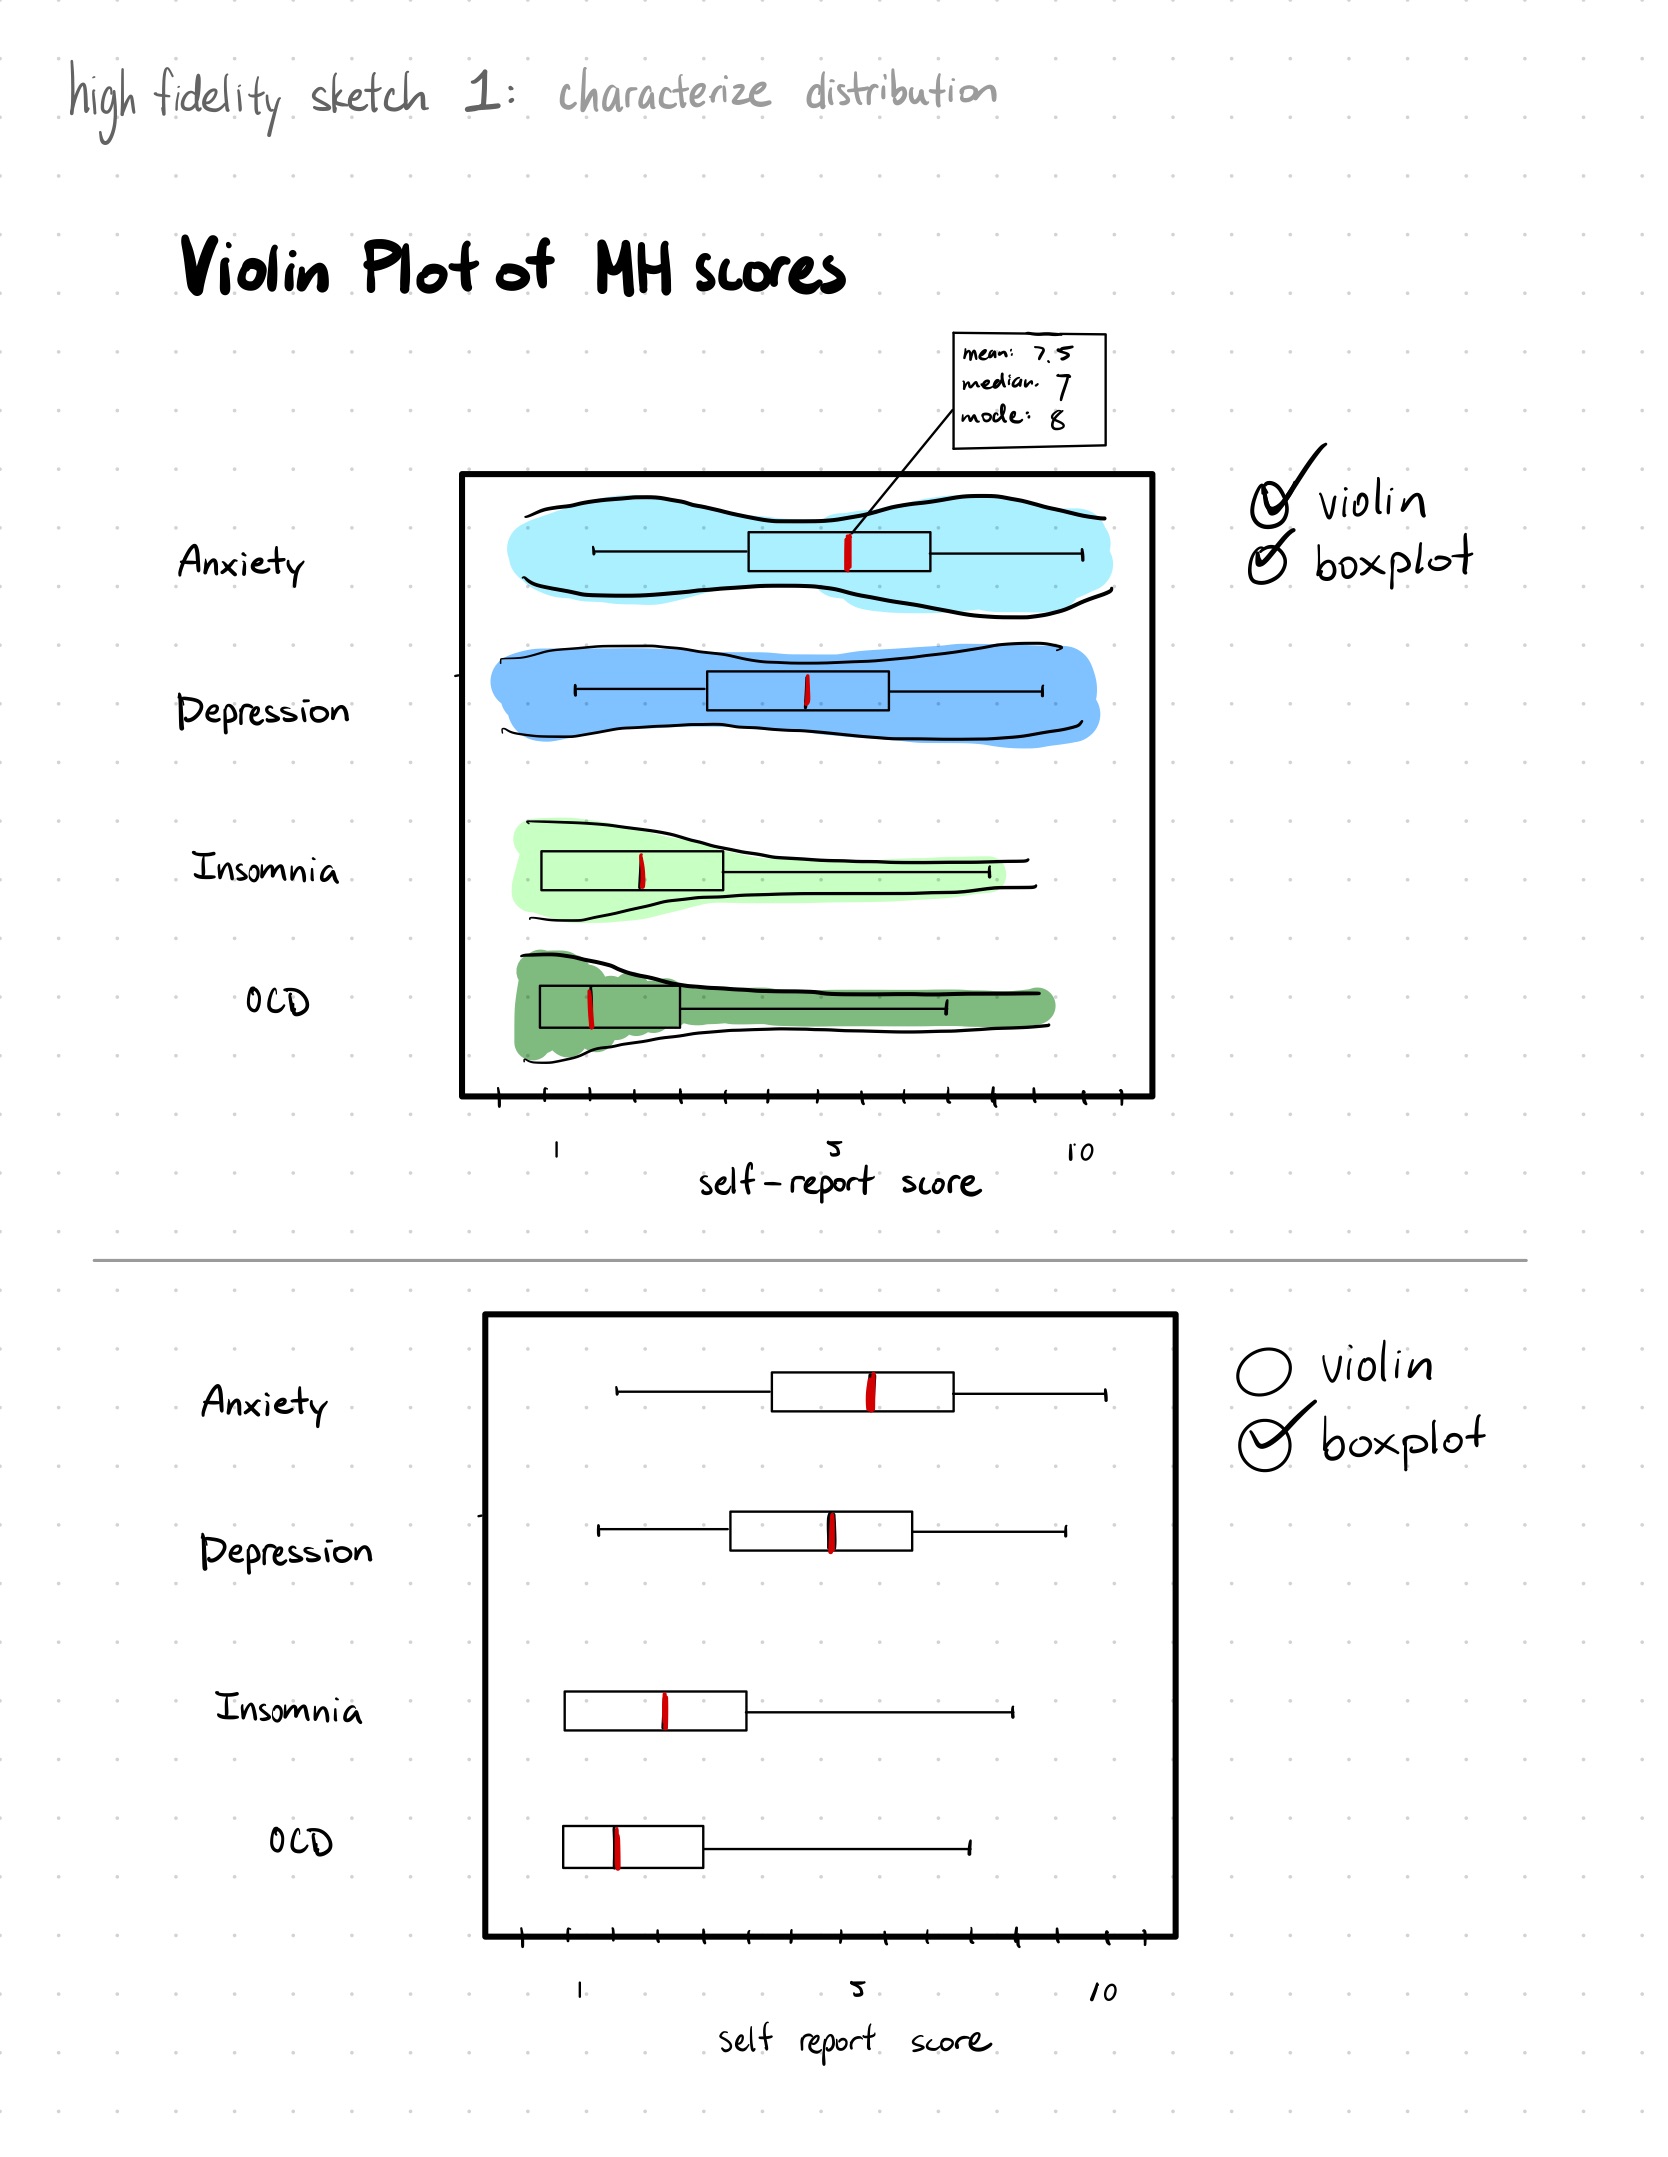 high fidelity sketch 1: characterize distribution
Violin Plot of MH scores
mean: 7.5
median. 7
mode: 8
violin
boxplot
Anxiety
Depression
Insomnia
OCD
1 5 10
self-report score
violin
boxplot
Anxiety
Depression
Insomnia
OCD
1 5 10
self report score